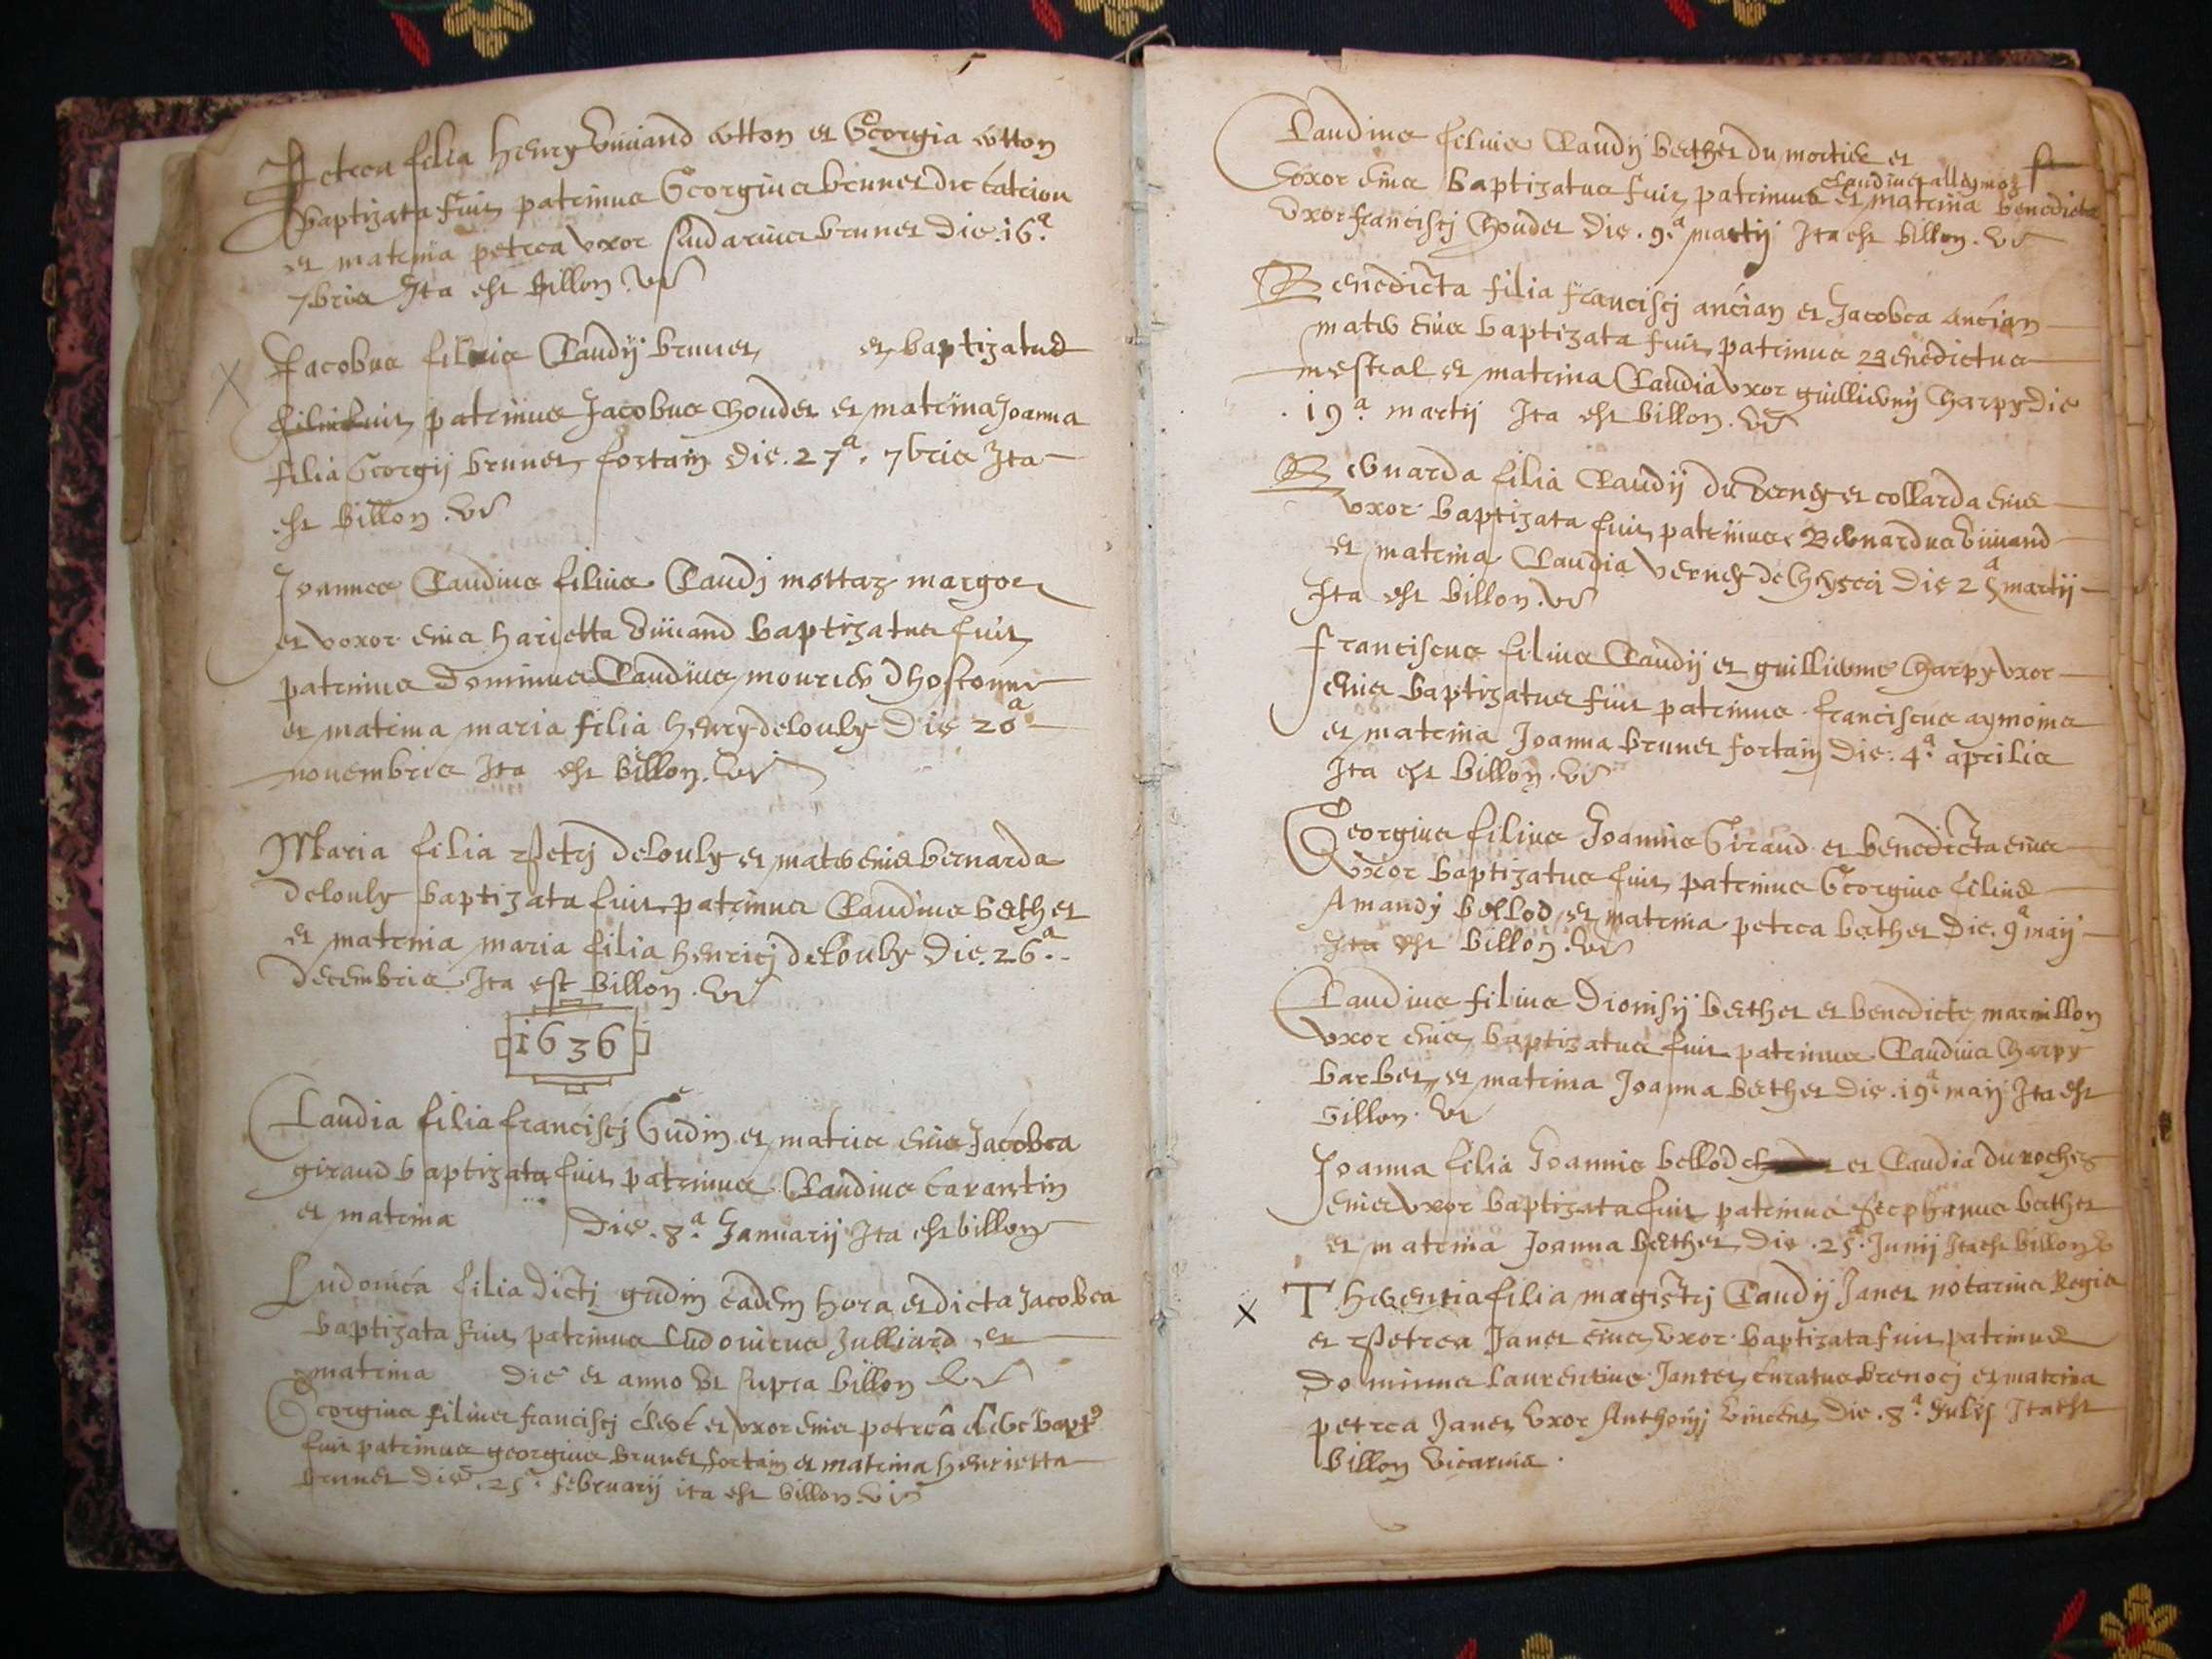 Petrea filia henry Vuiand cotton et Georgia cotton
baptizata fuit patrinus Georgius brunet dict catrion
et matrina petrea uxor sudarius brunet die 16.a
7bris Ita est billon. vi
Jacobus filius Claudij brunet et baptizatus
fuit, patrinus Jacobus Chouder et matrina Joanna
filia Georgij brunet fortain die. 27a. 7bris Ita
est billon. vi
Joannes Claudius filius Claudj mottaz margot
et uoxor eius harietta Vuiand baptizatus fuit
patrinus dominus Claudius mourier
et matrina maria filia henry delouly die 20a
novembris Ita est billon. vi
Maria filia Petrj delouly et mater eius bernarda
delouly baptizata fuit patrinus Claudius berthet
et matrina maria filia henricj delouly die. 26a.
decembris Ita est billon. vi
1636
Claudia filia franciscj Gudin et matris eius Jacobea
giraud baptizata fuit, patrinus Claudius
et matrina die. 8.a Januarij Ita est billon
Ludovica filia dictj gudin eadem hora, et dicta Jacobea
baptizata fuit, patrinus Ludovicus Julliard et
matrina die et anno ut supra billon vi
Georgius filius franciscj clert et uxor eius petrea bapt
fuit patrinus georgius brunet fortain et matrina henrietta
brunet die. 25a. februarij ita est billon. vi
Claudius filius Claudij berthet du mortier et
Claudius allaymoz
uoxor eius baptizatus fuit, patrinus et matrina benedicta
uxor francisj Chouder die. 9.a martij Ita est billon. vi
Benedicta filia francisj ancian et Jacobea ancian
mater eius baptizata fuit, patrinus Benedictus
mestral et matrina Claudia uxor guilliermj Charpy die
19a. martij Ita est billon. vi
Bernarda filia Claudij du verney et collarda eius
uxor baptizata fuit, patrinus Bernardus Vuiand
et matrina Claudia verney de die 25a martij
Ita est billon. vi
franciscus filius Claudij et guillierme Charpy uxor
eius baptizatus fuit patrinus franciscus aymoina
et matrina Joanna brunet fortain die: 4.a aprilis
Ita est billon. vi
Georgius filius Joannis Giraud et benedicta eius
uxor baptizatus fuit, patrinus Georgius filius
Amandj bellod et matrina petrea berthet die. 9a maij
Ita est billon. vi
Claudius filius Dionisij berthet et benedicte marmillon
uxor eius, baptizatus fuit patrinus Claudius Charpy
barbet, et matrina Joanna berthet die. 19a. maij Ita est
billon. vi
Joanna filia Joannis bellod et Claudia du roches
eius uxor baptizata fuit, patrinus stephanus berthet
et matrina Joanna berthet die. 25a. Junij Ita est billon v
Therentia filia magistrj Claudij Janet notarius Regis
et Petrea Janet eius uxor baptizata fuit, patrinus
dominus Laurentius Jantet curatus brenocj et matrina
petrea Janet uxor Anthonij Vincent die. 8a. Julij Ita est
billon vicarius.